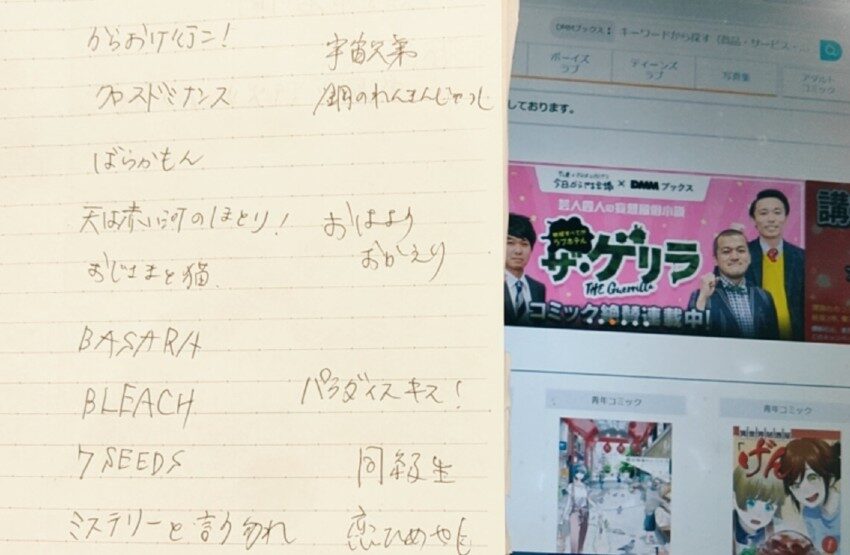 からおけ行こ!
宇宙兄弟
クロスドミナンス
鋼のれんきんじゅつし
ばらかもん
天は赤い河のほとり!
おはよう
おかえり
おじさまと猫
BASARA
BLEACH
パラダイスキス!
7SEEDS
同級生
ミステリーと言う勿れ
DMMブックス
キーワードから探す(商品・サービス・
ボーイズ
ラブ
ティーンズ
ラブ
写真集
アダルト
コミック
しております。
× DMMブックス
芸人芸人の
ラブホテル
ザ・ゲリラ
THE Guerrilla
コミック絶賛連載中!
講
青年コミック
青年コミック
げん